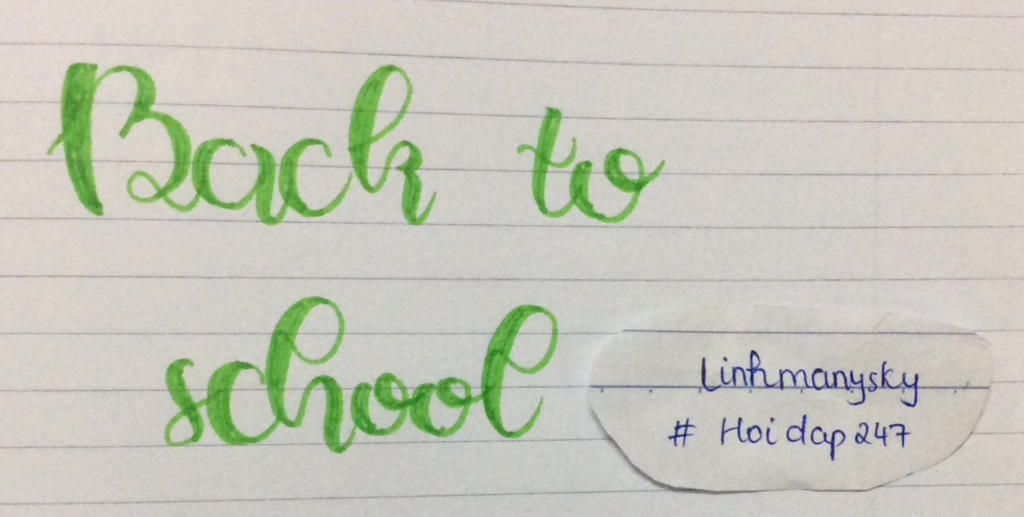 Back to
school
Linhmanysky
# Hoidap247